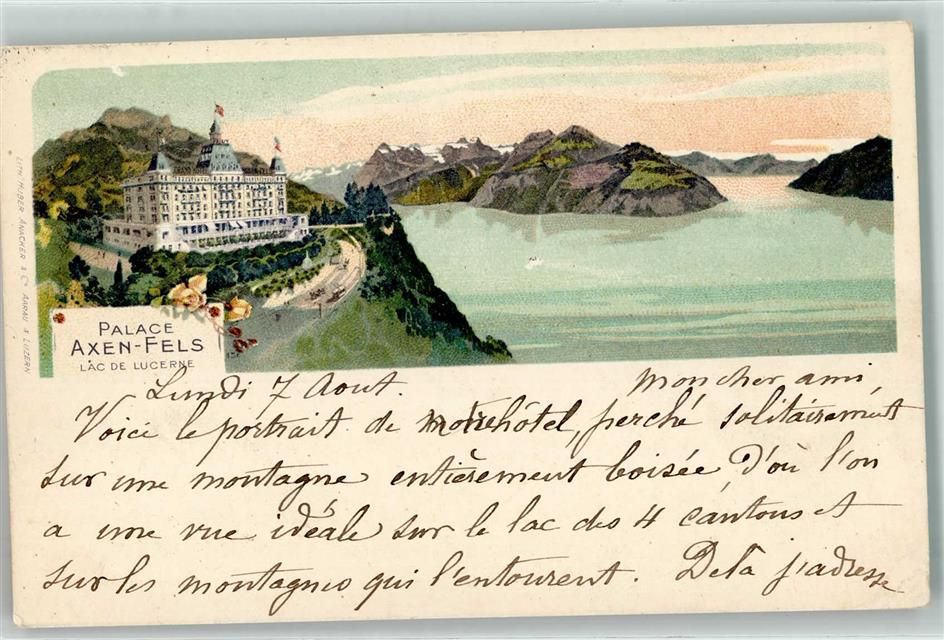 LITH. HUBER ANACHER & Cº AARAU & LUZERN
PALACE
AXEN-FELS
LAC DE LUCERNE
Lundi 7 Aout. Mon cher ami,
Voici le portrait de notre hôtel, perché solitairement
sur une montagne entièrement boisée d'où l'on
a une vue idéale sur le lac des 4 cantons et
sur les montagnes qui l'entourent. De là j'adresse